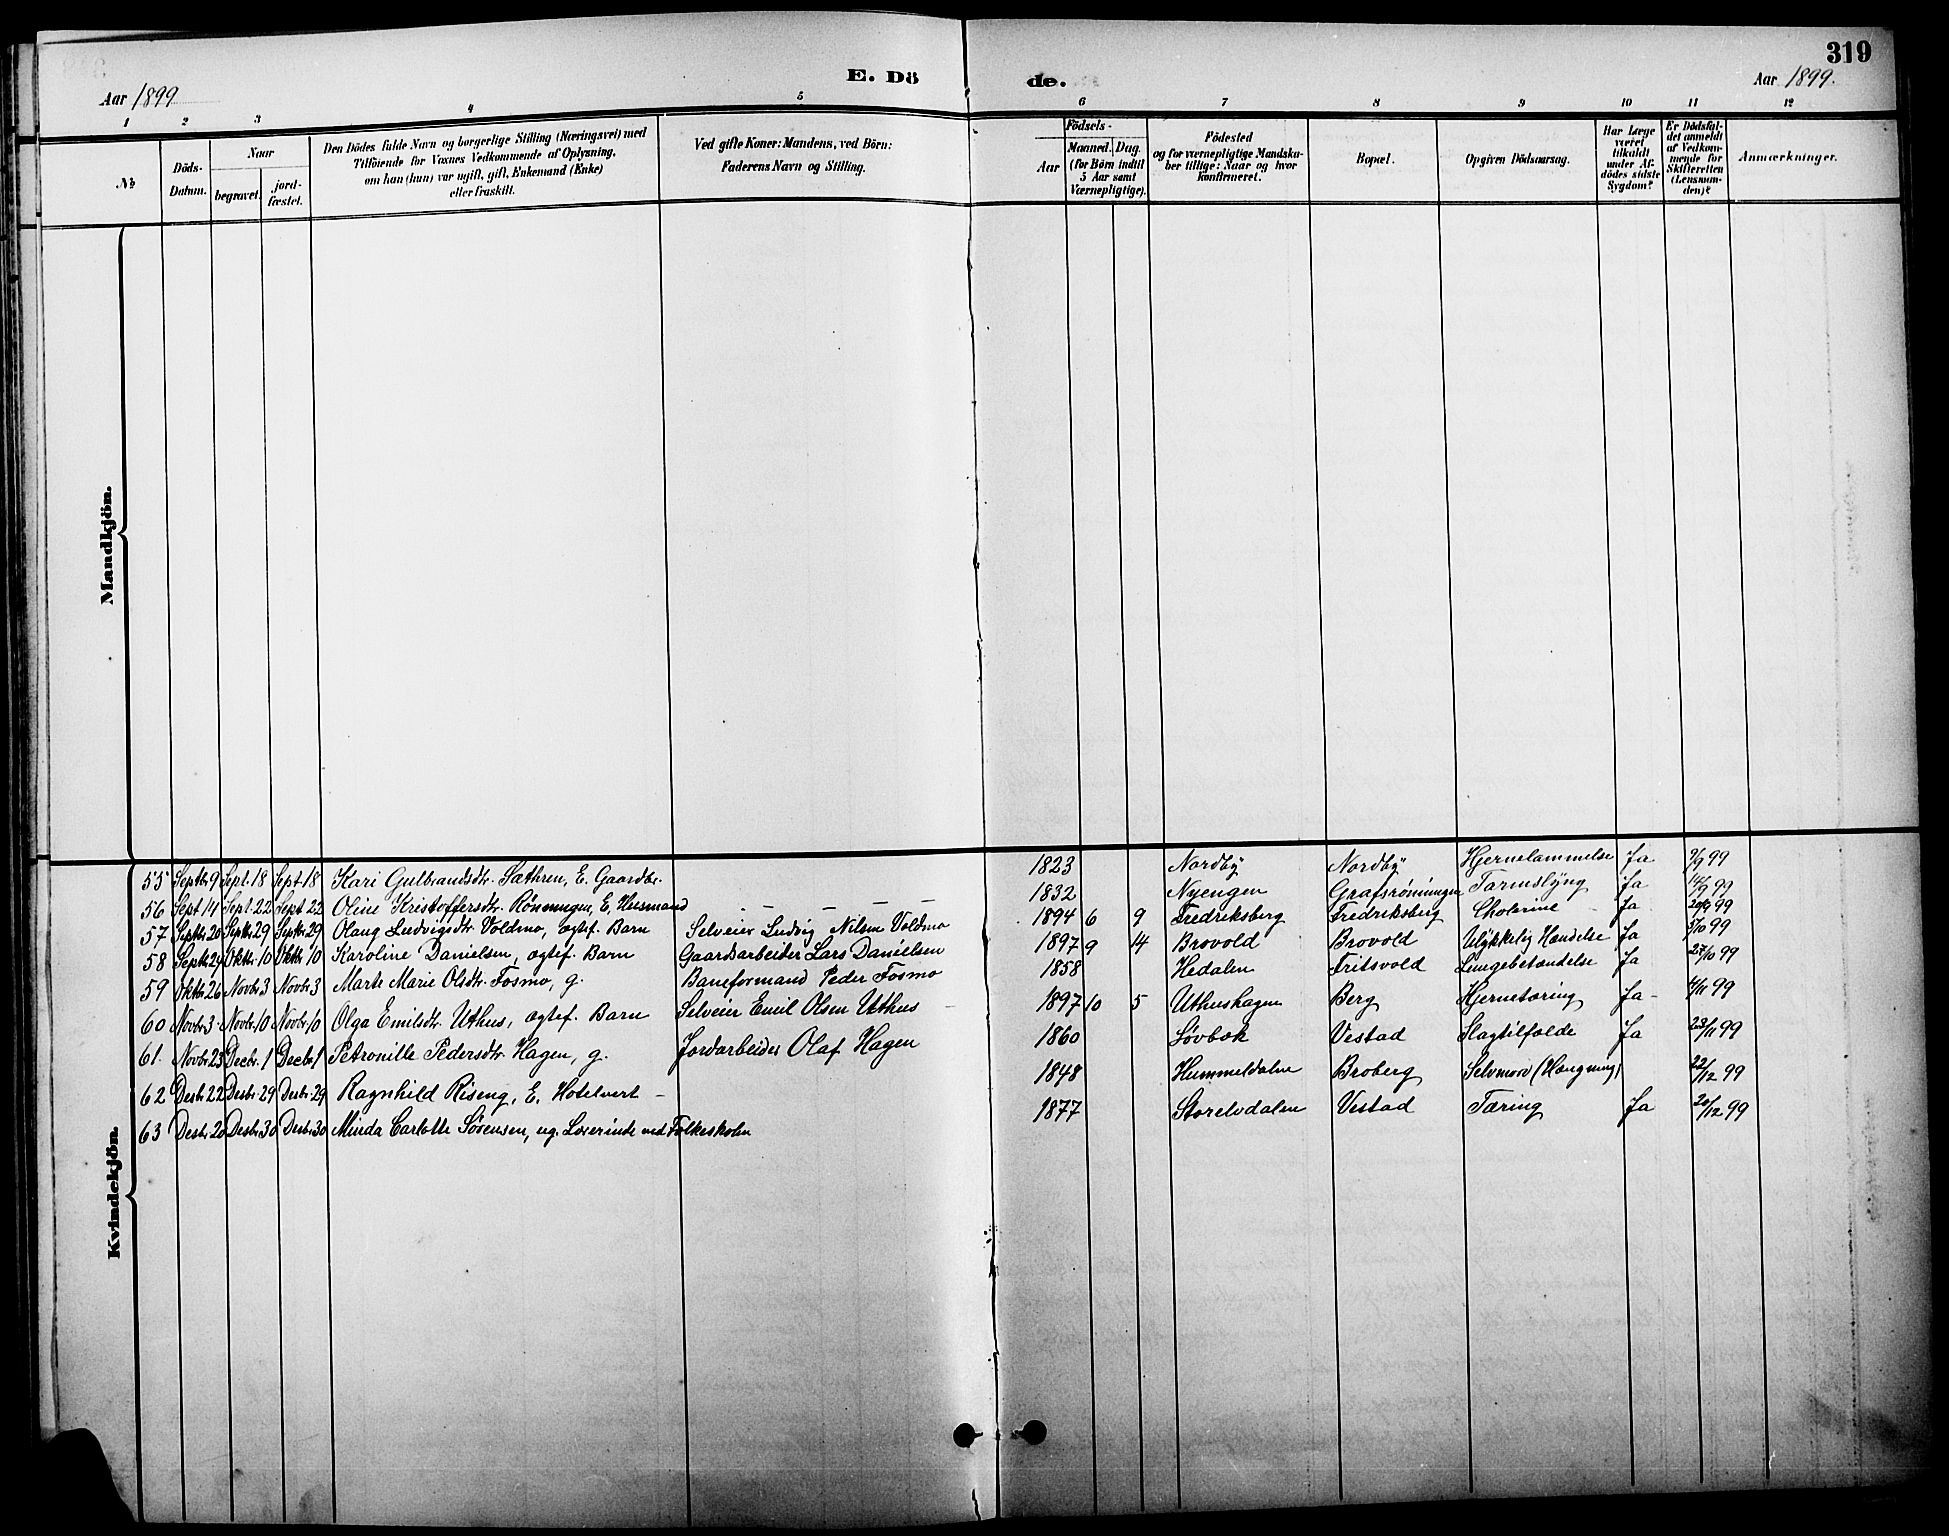 319
E. Dö de.
Aar 1899
Aar 1899.
1 2 3 4 5 6 7 8 9 10 11 12
№
Döds-Datum.
Naar
begravet.
jord-fæstet.
Den Dödes fulde Navn og borgerlige Stilling (Næringsvei) med
Tilföiende for Voxnes Vedkommende af Oplysning,
om han (hun) var ugift, gift, Enkemand (Enke)
eller fraskilt.
Ved gifte Koner: Mandens, ved Börn:
Faderens Navn og Stilling.
Födsels-
Aar
Maaned. Dag.
(for Börn indtil
5 Aar samt
Værnepligtige).
Födested
og for værnepligtige Mandska-
ber tillige: Naar og hvor
konfirmeret.
Bopæl.
Opgiven Dödsaarsag.
Har Læge
været
tilkaldt
under Af-
dödes sidste
Sygdom?
Er Dödsfal-
det anmeldt
af Vedkom-
mende for
Skifteretten
(Lensman-
den)?
Anmærkninger.
Mandkjön.
Kvindekjön.
55 Septbr 9 Sept. 18 Sept. 18 Kari Gulbrandsdtr. Sæthren, E. Gaardbr. 1823 Nordby Nordby Hjernelammelse Ja 9/9 99
56 Sept 14 Sept. 22 Sept 22 Oline Kristoffersdtr. Rönningen, E. Husmand — — — — — 1832 Nyengen Grafsrönningen Tarmslyng Ja 14/9 99
57 Septbr 20 Septbr 29 Septbr 29 Olaug Ludvigsdtr. Voldmo, ægtef. Barn Selveier Ludvig Nilsen Voldmo 1894 6 9 Fredriksberg Fredriksberg Cholerine Ja 20/9 99
58 Septbr 29 Oktbr 10 Oktbr 10 Karoline Danielsen, ægtef. Barn Gaardsarbeider Lars Danielsen 1897 9 14 Brovold Brovold Ulykkelig Hændelse Ja 5/10 99
59 Oktbr 26 Novbr 3 Novbr 3 Marte Marie Olsdtr. Fosmo, g. Baneformand Peder Fosmo 1858 Hedalen Fritsvold Lungebetændelse Ja 27/10 99
60 Novbr 3 Novbr. 10 Novbr. 10 Olga Emilsdtr. Uthus, ægtef. Barn Selveier Emil Olsen Uthus 1897 10 5 Uthushagen Berg Hjernetæring Ja 4/11 99
61. Novbr 23 Decbr. 1 Decbr 1 Petronille Pedersdtr. Hagen, g. Jordarbeider Olaf Hagen 1860 Lövbæk Vestad Slagtilfælde Ja 23/11 99
62 Desbr 22 Desbr 29 Desbr 29 Ragnhild Riseng, E. Hotelvert 1848 Hummeldalen Broberg Selvmord (Hængning) 22/12 99
63 Desbr 20 Desbr 30 Desbr 30 Minda Carlotte Sörensen, ug. Lærerinde ved Folkeskolen 1877 Storelvdalen Vestad Tæring Ja 20/12 99